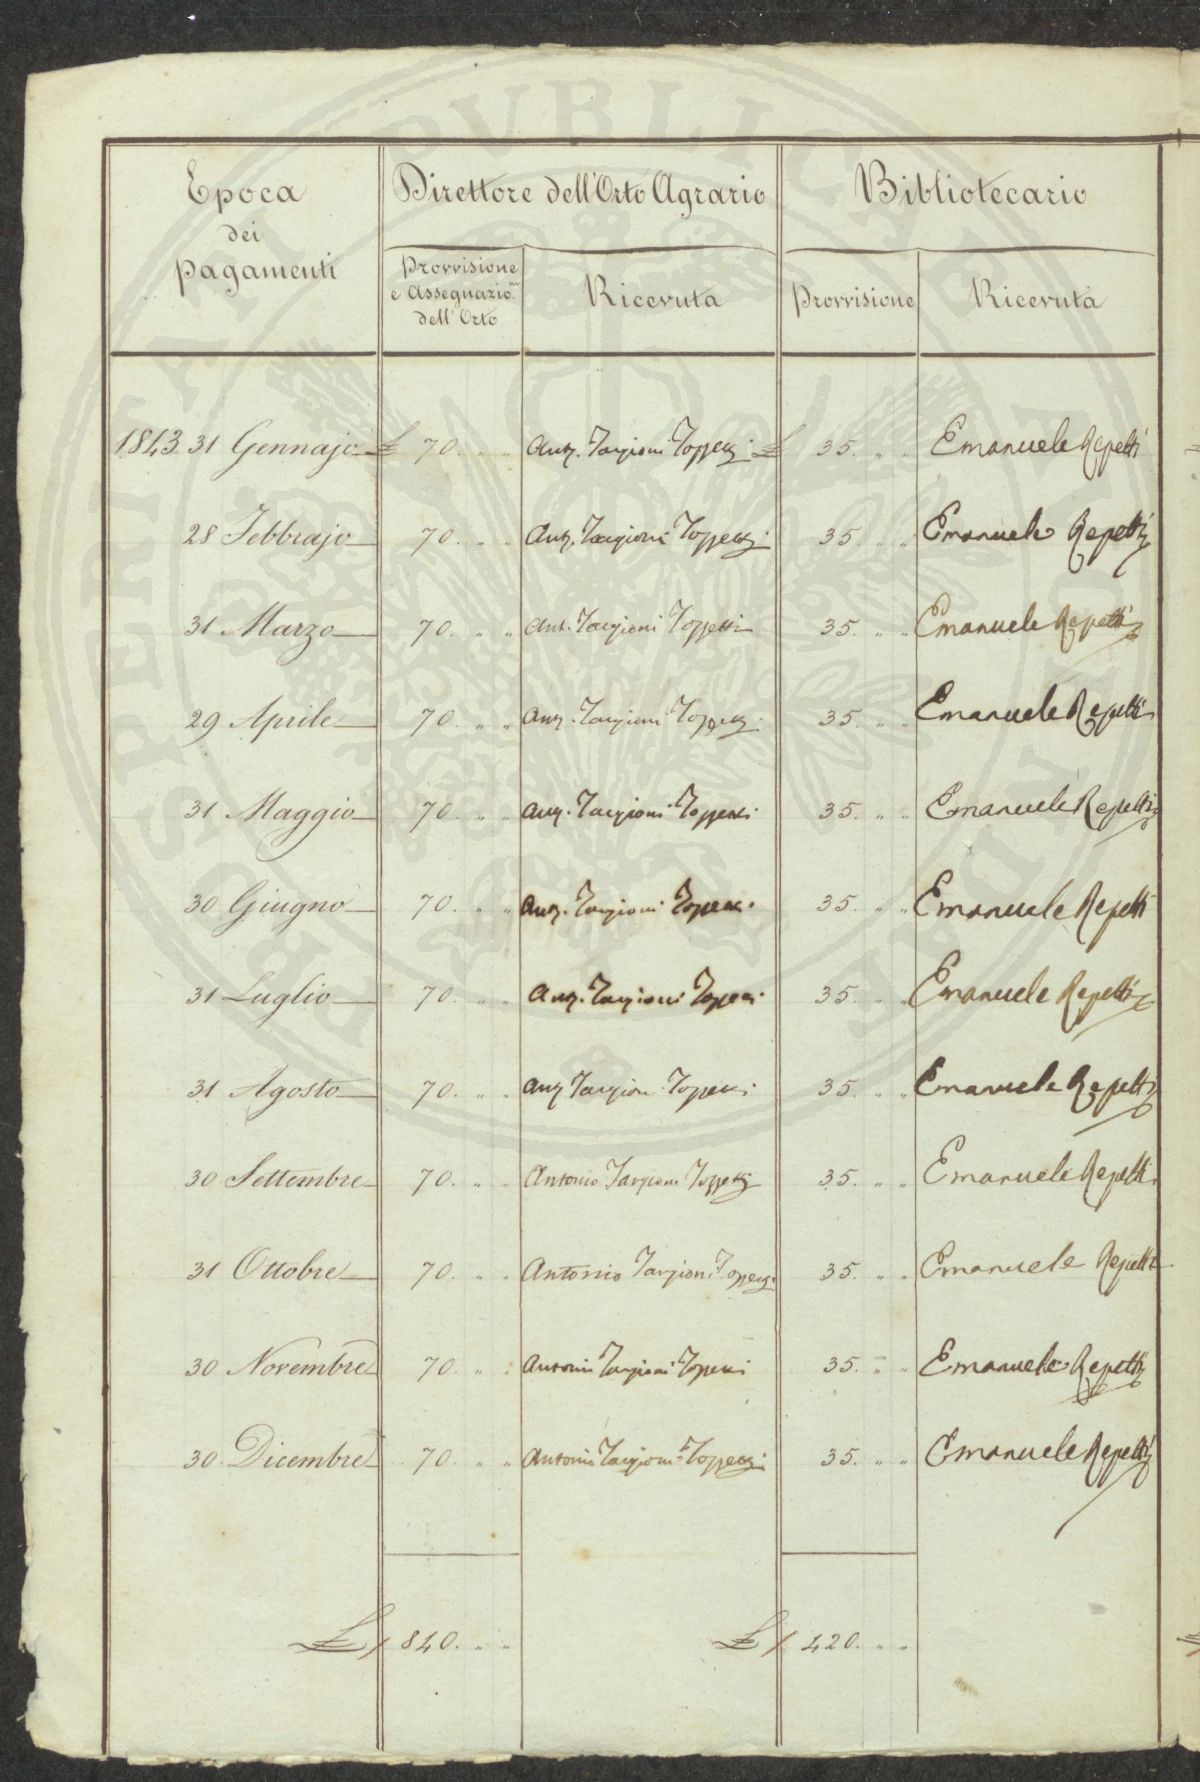 Epoca
dei
pagamenti
Direttore dell'Orto Agrario
Bibliotecario
Provvisione
e Assegnazio.ne
dell'Orto
Ricevuta
Provvisione
Ricevuta
1843. 31 Gennajo £ 70. " " Ant. Targioni Tozzetti £ 35. " " Emanuele Repetti
28 Febbrajo 70. " " Ant. Targioni Tozzetti 35. " " Emanuele Repetti
31 Marzo 70. " " Ant. Targioni Tozzetti 35. " " Emanuele Repetti
29 Aprile 70. " " Ant. Targioni Tozzetti 35. " " Emanuele Repetti
31 Maggio 70. " " Ant. Targioni Tozzetti 35. " " Emanuele Repetti
30 Giugno 70. " " Ant. Targioni Tozzetti 35. " " Emanuele Repetti
31 Luglio 70. " " Ant. Targioni Tozzetti 35. " " Emanuele Repetti
31 Agosto 70. " " Ant Targioni Tozzetti 35. " " Emanuele Repetti
30 Settembre 70. " " Antonio Targioni Tozzetti 35. " " Emanuele Repetti
31 Ottobre 70. " " Antonio Targioni Tozzetti 35. " " Emanuele Repetti
30 Novembre 70. " " Antonio Targioni Tozzetti 35. " " Emanuele Repetti
30 Dicembre 70. " " Antonio Targioni Tozzetti 35. " " Emanuele Repetti
£ 840. " " £ 420. " "